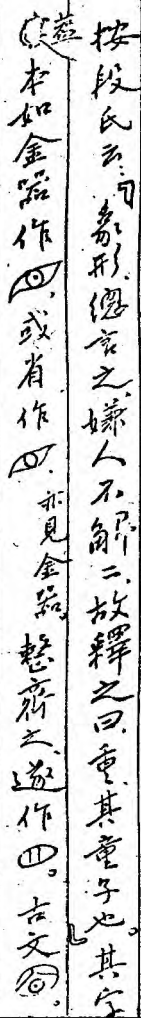 按段氏云：「象形總言之、嫌人不解二、故釋之曰、重其童子也。」其字
蓋本如金器作、或省作、亦見金器。整齊之、遂作。古文。